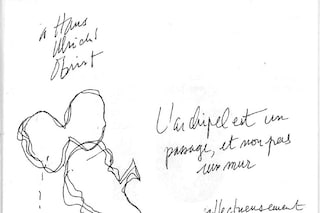 à Hans
Ulrich
Obrist
L'archipel est un
passage, et non pas
un mur
affectueusement